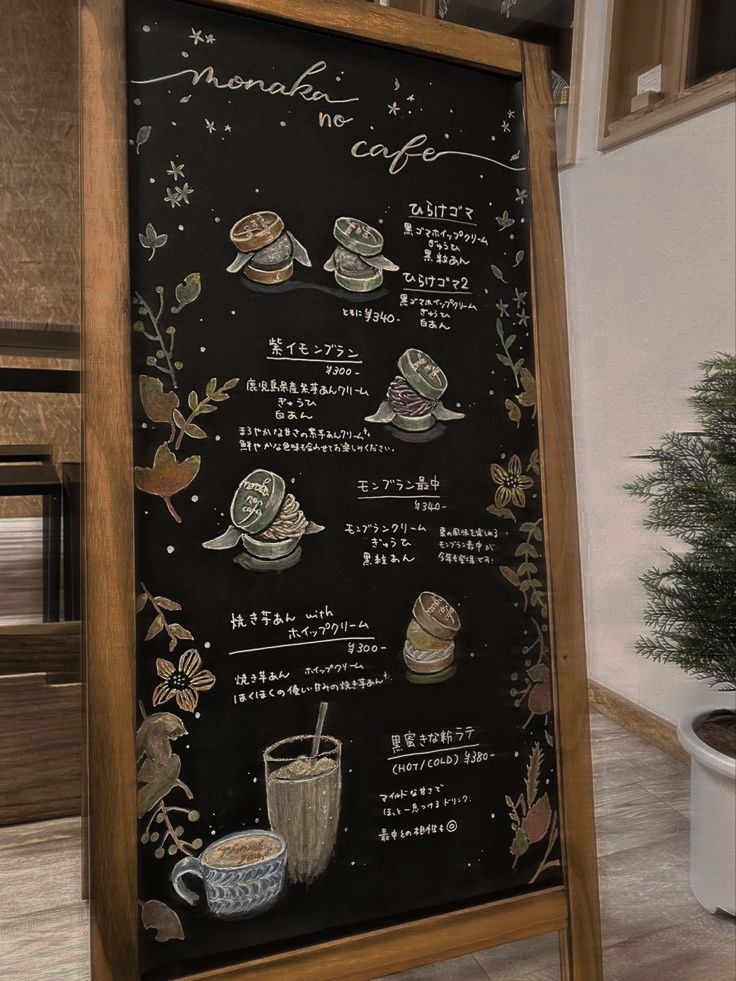 monaka
no
cafe
ひらけゴマ
黒ゴマホイップクリーム
ぎゅうひ
黒粒あん
ひらけゴマ2
黒ゴマホイップクリーム
ぎゅうひ
白あん
ともに ¥340-
紫イモンブラン
¥300-
鹿児島県産紫芋あんクリーム
ぎゅうひ
白あん
まろやかな甘さの紫芋あんクリーム
鮮やかな色味も合わせてお楽しみください。
monaka
no
cafe
モンブラン最中
¥340-
モンブランクリーム
ぎゅうひ
黒粒あん
栗の風味を楽しめる
モンブラン最中が
今年も登場です!
焼き芋あん with
ホイップクリーム
¥300-
焼き芋あん ホイップクリーム
ほくほくの優しい甘みの焼き芋あん
黒蜜きな粉ラテ
(HOT/COLD) ¥380-
マイルドな甘さで
ほっと一息つけるドリンク.
最中との相性も◎